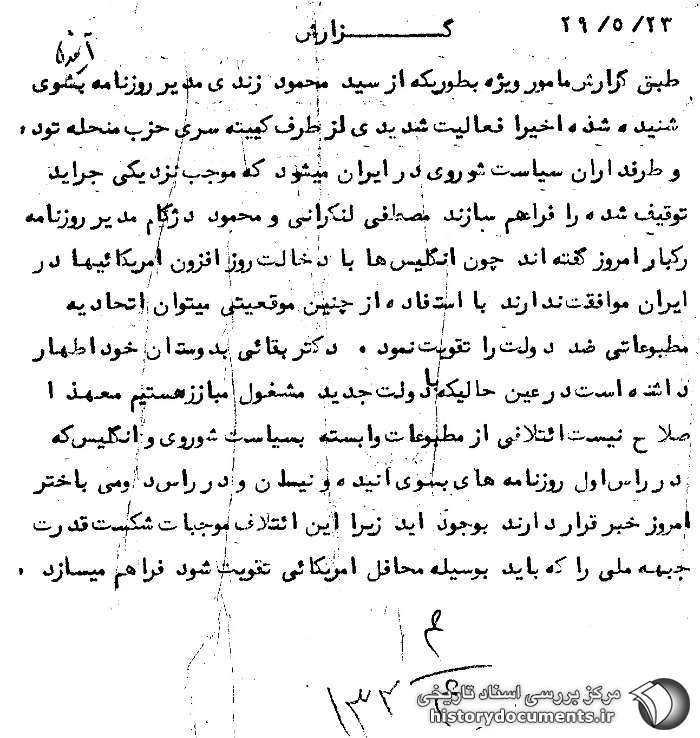 ۲۹/۵/۲۳
گـــــزارش
آینده
طبق گزارش مامور ویژه بطوریکه از سید محمود زندی مدیر روزنامه بسوی
شنیده شده اخیرا فعالیت شدیدی از طرف کمیته سری حزب منحله توده
و طرفداران سیاست شوروی در ایران میشود که موجب نزدیکی جراید
توقیف شده را فراهم سازند مصطفی لنکرانی و محمود دژکام مدیر روزنامه
رگبار امروز گفته اند چون انگلیس ها با دخالت روز افزون امریکائیها در
ایران موافقت ندارند با استفاده از چنین موقعیتی میتوان اتحادیه
مطبوعاتی ضد دولت را تقویت نمود . دکتر بقائی بدوستان خود اظهار
داشته است در عین حالیکه با دولت جدید مشغول مبارزه هستیم معهذا
صلاح نیست ائتلافی از مطبوعات وابسته بسیاست شوروی و انگلیس که
در راس اول روزنامه های بسوی آینده و نیسان و در راس دومی باختر
امروز خبر قرار دارند بوجود اید زیرا این ائتلاف موجبات شکست قدرت
جبهه ملی را که باید بوسیله محافل امریکائی تقویت شود فراهم میسازد .
مرکز بررسی اسناد تاریخی
historydocuments.ir